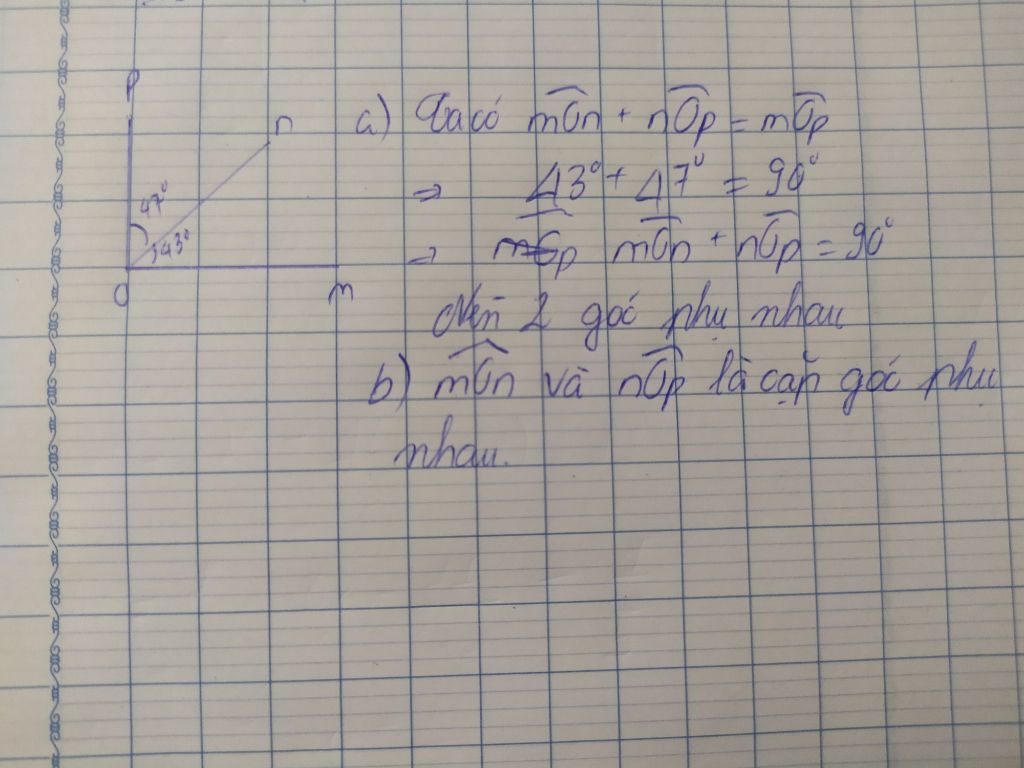 P
n
47°
43°
O
m
a) Ta có mÔn + nÔp = mÔp
=> 43° + 47° = 90°
=> mÔp mÔn + nÔp = 90°
Nên 2 góc phụ nhau
b) mÔn và nÔp là cặp góc phụ
nhau.